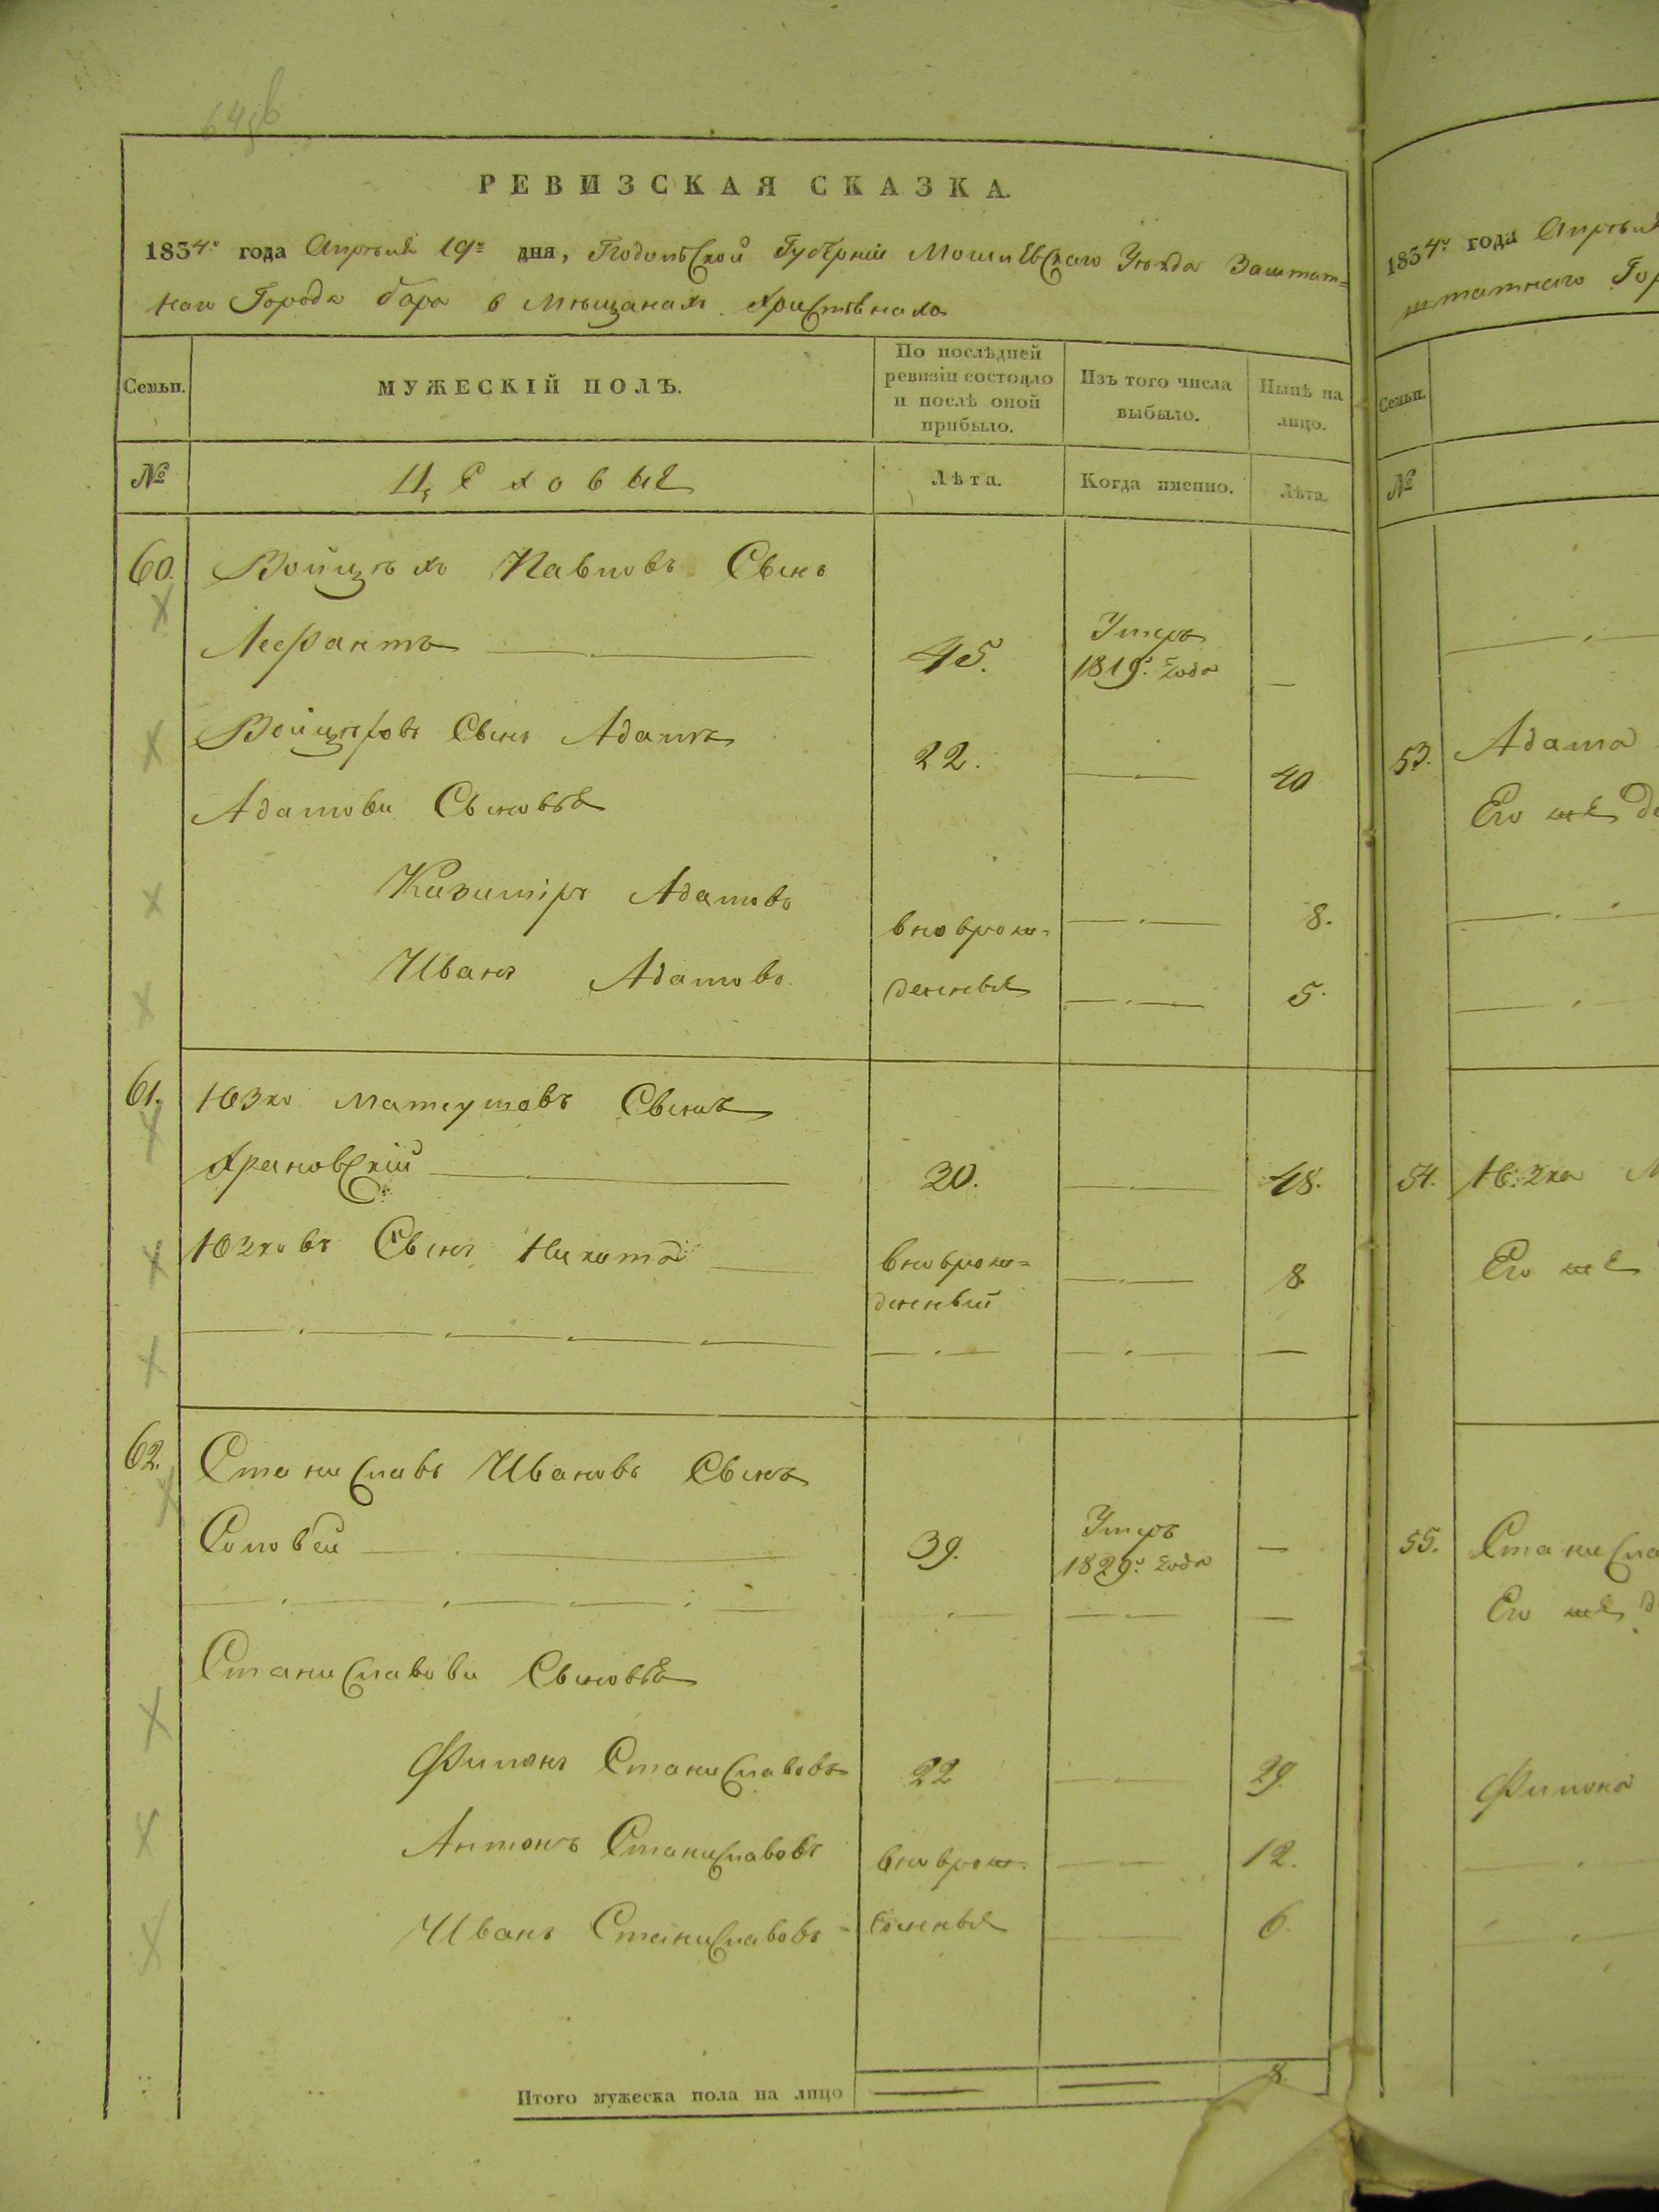 РЕВИЗСКАЯ СКАЗКА.
1834.º года Апрѣля 19º дня, Подольской Губерніи Могилевскаго Уѣзда Заштат=
наго Города бара в Мѣщанахъ Христіянахъ
Семьи.
МУЖЕСКІЙ ПОЛЪ.
По послѣдней ревизіи состояло и послѣ оной прибыло.
Изъ того числа выбыло.
Нынѣ на лицо.
№
Цеховые
Лѣта.
Когда именно.
Лѣта.
60. Войцѣхъ Павловъ Сынъ
Лефантъ 45. Умеръ 1819º. года —
Войцѣховъ Сынъ Адамъ 22. — 40
Адамови Сыновья
Казиміръ Адамовъ вноврож= — 8.
Иванъ Адамовъ. денные — 5.
61. Юзко Матеушовъ Сынъ
Храновскій 30. — 48.
Юзковъ Сынъ Никита вноврож=
денный — 8
62. Станиславъ Ивановъ Сынъ
Соловей 39. Умеръ 1829º. года —
Станиславови Сыновья
Филонъ Станиславовъ 22 — 29.
Антонъ Станиславовъ вноврож= — 12.
Иванъ Станиславовъ денные 6.
Итого мужеска пола на лицо 8.
1834º. года Апрѣля
штатнаго Гор
Семьи.
№
53. Адама
Его же до
54. Юзка М
Его же
55. Станисла
Его же д
Филона